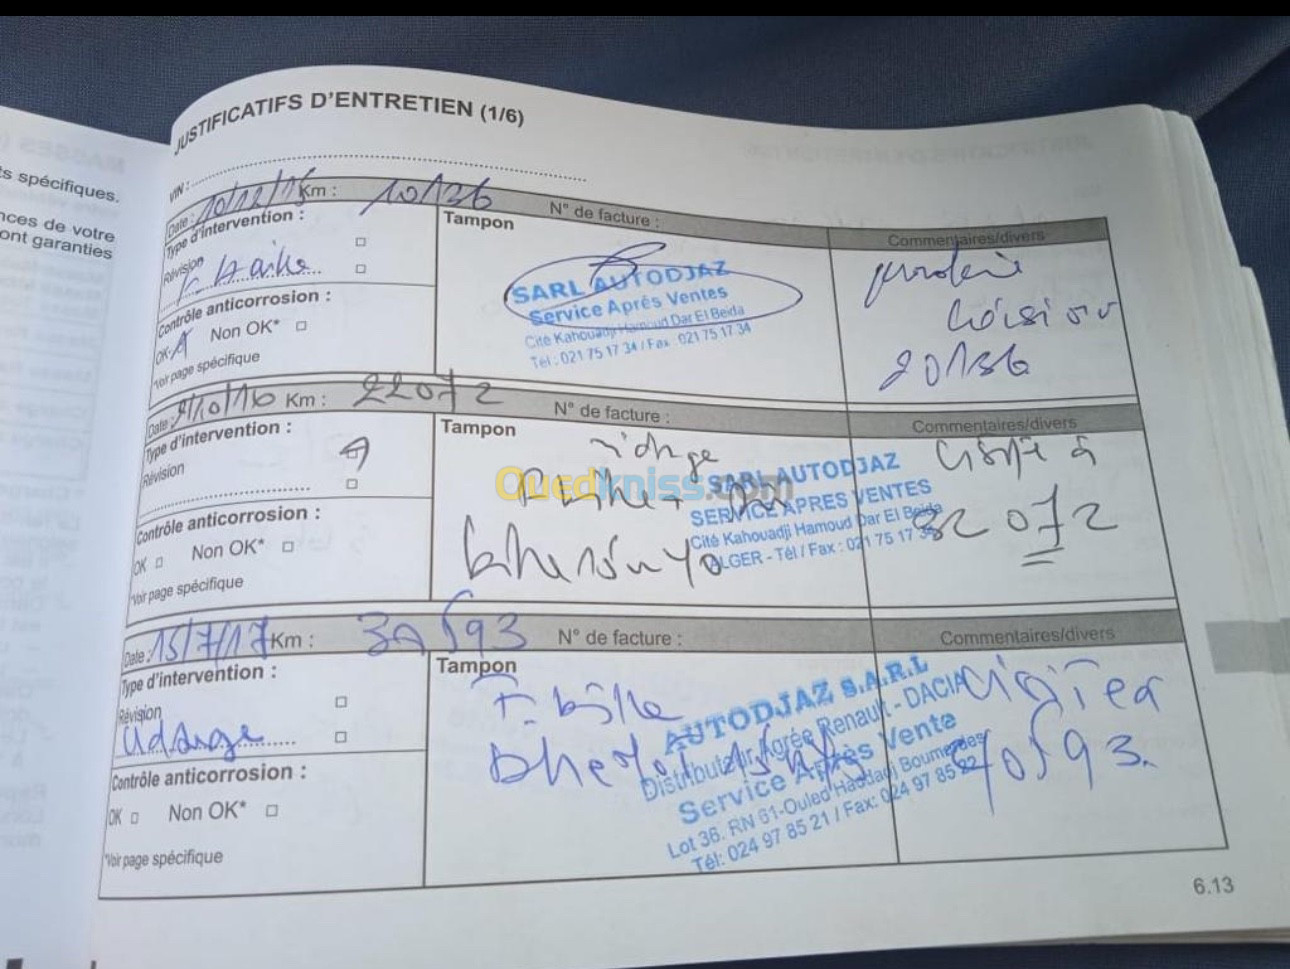 ts spécifiques.
nces de votre
ont garanties
JUSTIFICATIFS D'ENTRETIEN (1/6)
VIN :
Date : 10/12/15 Km : 10136 N° de facture :
Type d'intervention : Tampon Commentaires/divers
Révision
SARL AUTODJAZ
Service Après Ventes
Cité Kahouadji Hamoud Dar El Beida
Tél : 021 75 17 34 / Fax : 021 75 17 34
20136
Contrôle anticorrosion :
OK Non OK*
*Voir page spécifique
Date : /10/16 Km : 22072 N° de facture :
Type d'intervention : Tampon Commentaires/divers
Révision
Ouedkniss.com
SARL AUTODJAZ
SERVICE APRES VENTES
Cité Kahouadji Hamoud Dar El Beida
ALGER - Tél / Fax : 021 75 17 34
à
32072
Contrôle anticorrosion :
OK Non OK*
*Voir page spécifique
Date : 15/7/17 Km : 30593 N° de facture :
Type d'intervention : Tampon Commentaires/divers
Révision
Vidange
AUTODJAZ S.A.R.L
Distributeur Agréé Renault - DACIA
Service Après Vente
Lot 36. RN 61-Ouled Haddadj Boumerdes
Tél: 024 97 85 21 / Fax: 024 97 85 22
40593.
Contrôle anticorrosion :
OK Non OK*
*Voir page spécifique
6.13